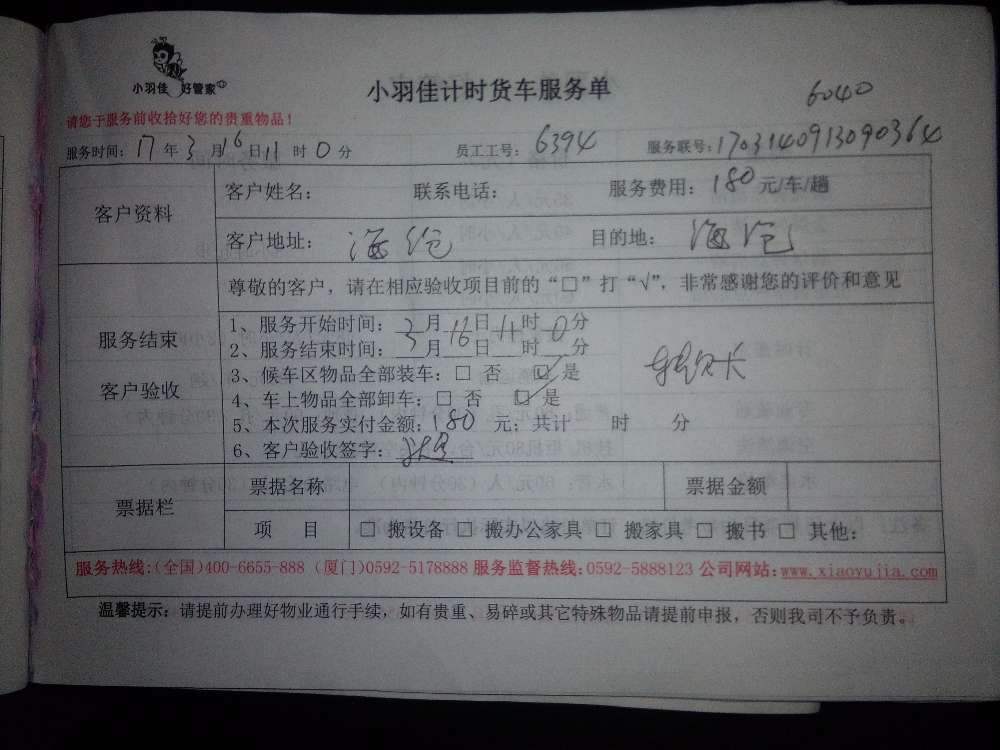 小羽佳 好管家
小羽佳计时货车服务单
6040
请您于服务前收拾好您的贵重物品！
服务时间：17年3月16日11时0分 员工工号：6394 服务联号：1703140913090364
客户资料
客户姓名： 联系电话： 服务费用：180元/车/趟
客户地址：海沧 目的地：海沧
服务结束
客户验收
尊敬的客户，请在相应验收项目前的“□”打“√”，非常感谢您的评价和意见
1、服务开始时间：3月16日11时0分
2、服务结束时间：__月__日__时__分
3、候车区物品全部装车：□ 否 □ 是
4、车上物品全部卸车：□ 否 □ 是
5、本次服务实付金额：180元；共计 时 分
6、客户验收签字：
票据栏
票据名称 票据金额
项 目 □ 搬设备 □ 搬办公家具 □ 搬家具 □ 搬书 □ 其他：
服务热线:(全国)400-6655-888 (厦门)0592-5178888 服务监督热线:0592-5888123 公司网站:www.xiaoyujia.com
温馨提示：请提前办理好物业通行手续，如有贵重、易碎或其它特殊物品请提前申报，否则我司不予负责。